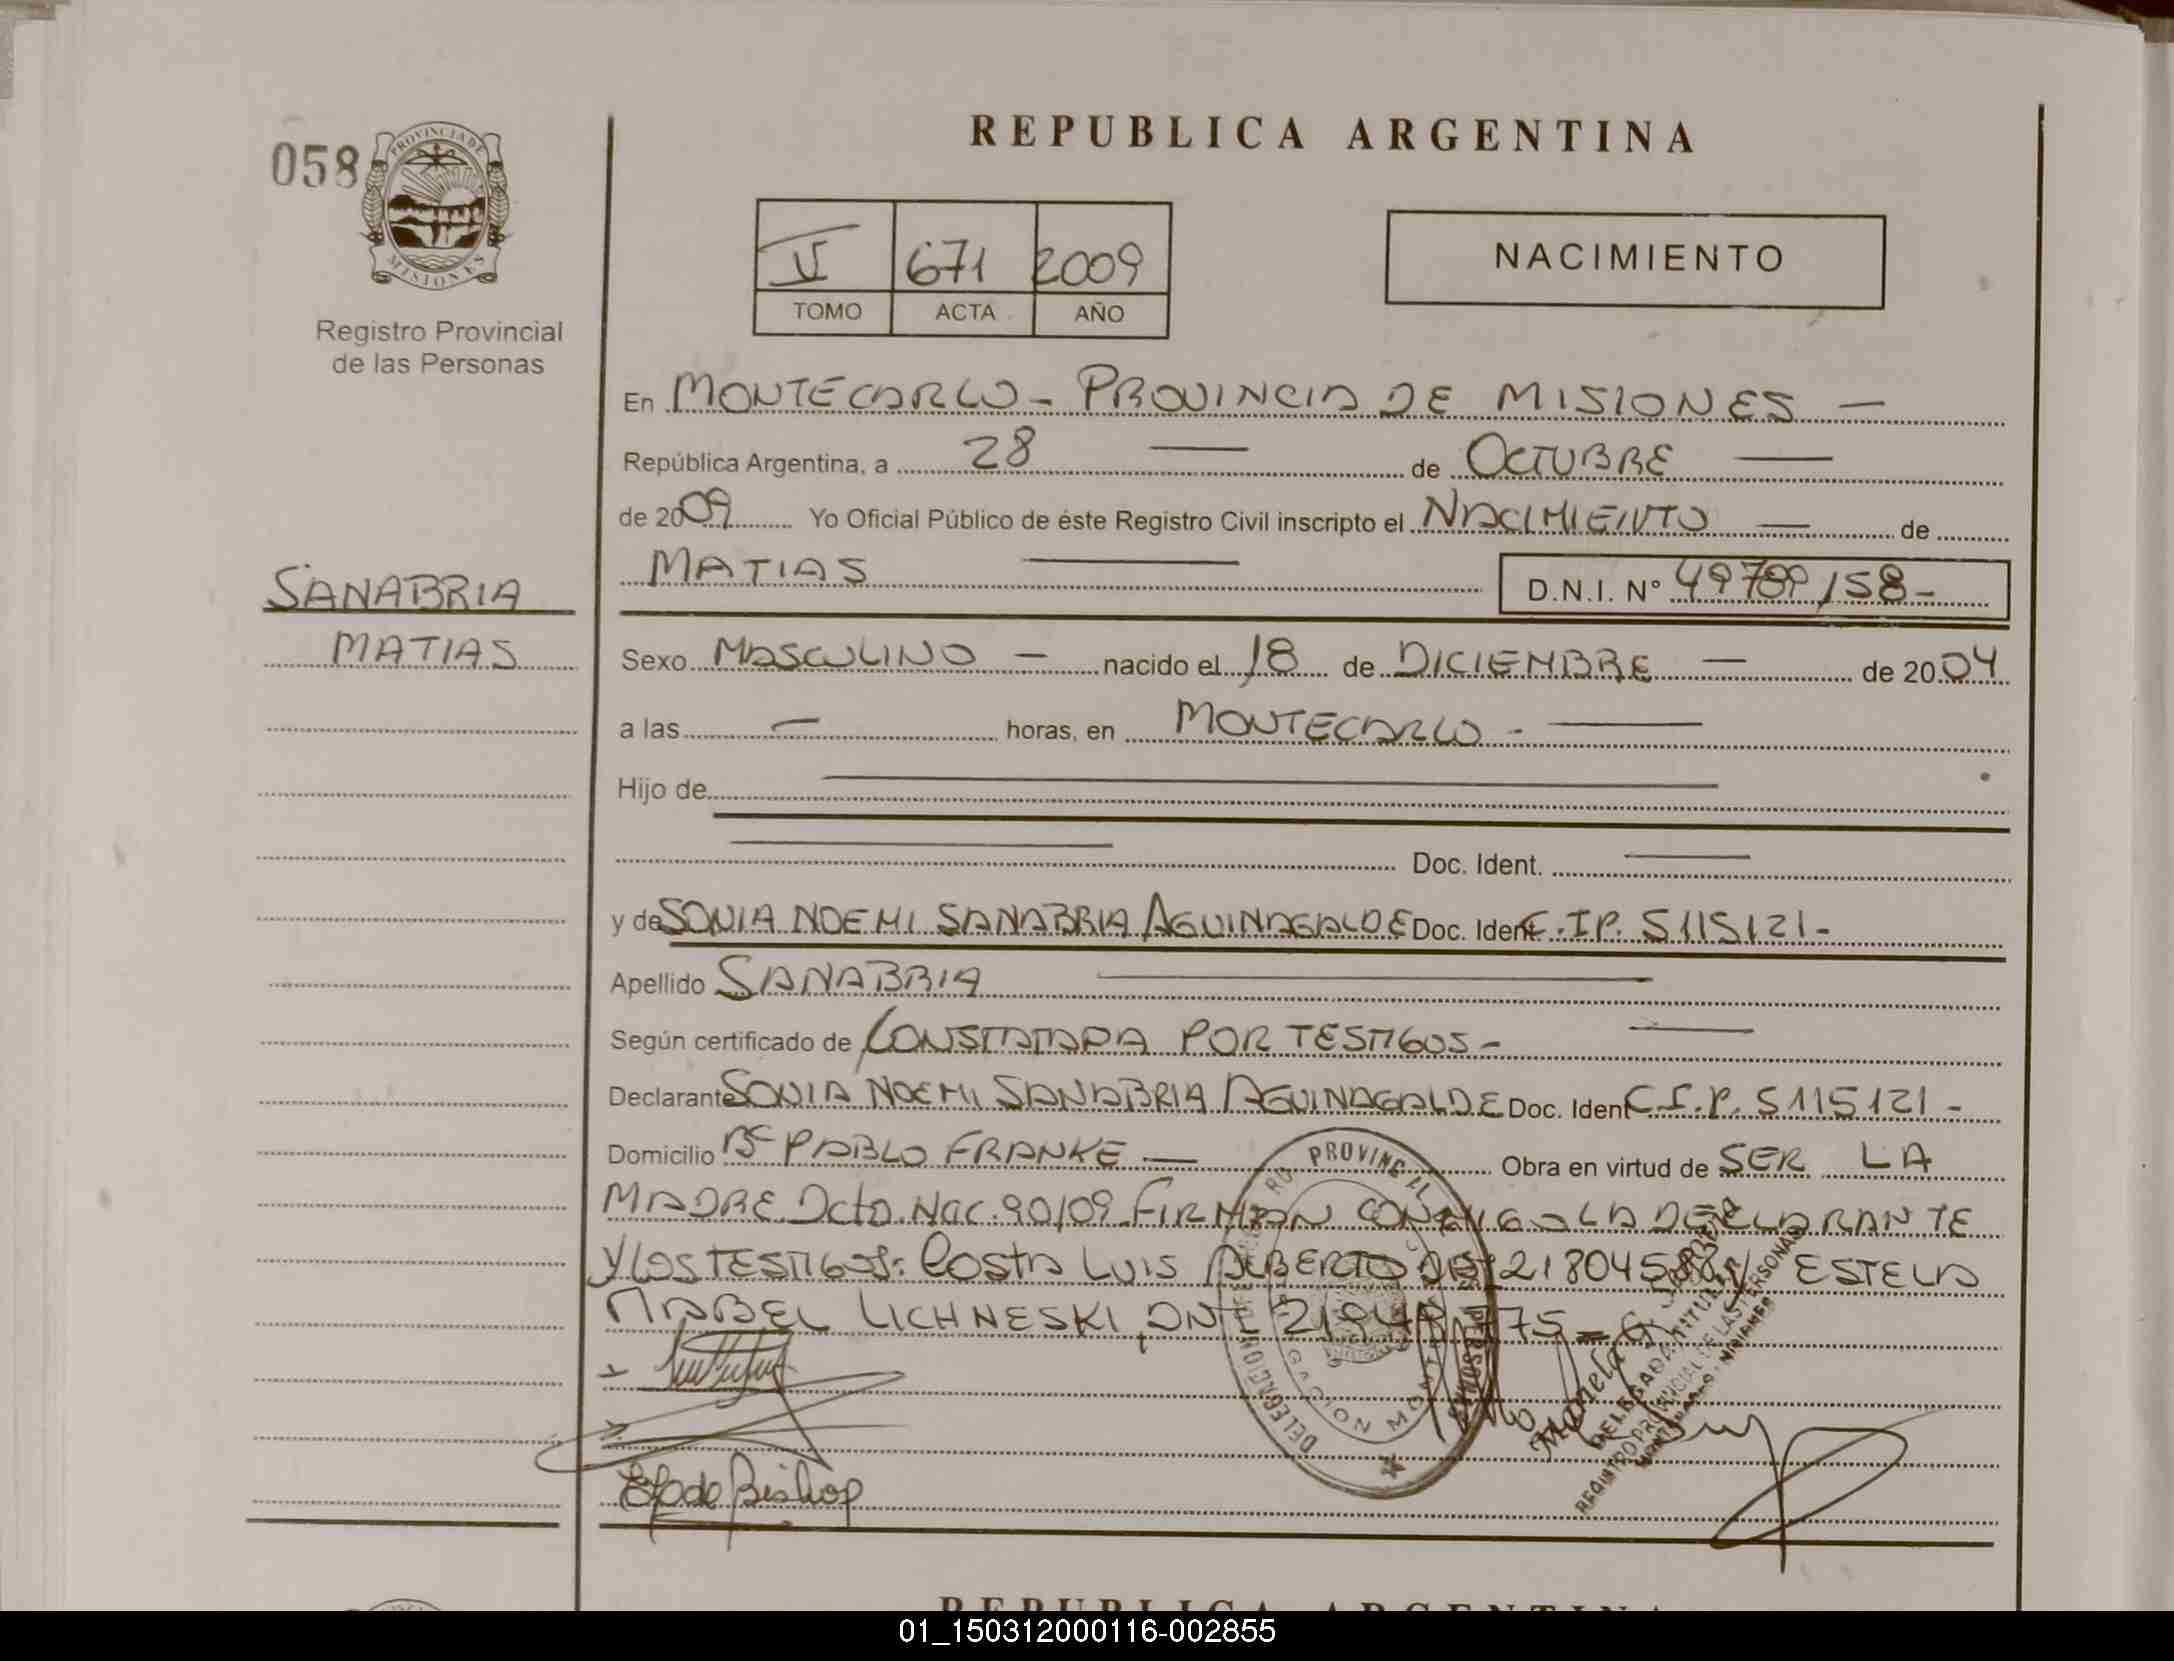 REPUBLICA ARGENTINA
058
PROVINCIA DE
MISIONES
Registro Provincial
de las Personas
V 671 2009
TOMO ACTA AÑO
NACIMIENTO
En MONTECARLO - PROVINCIA DE MISIONES -
República Argentina, a 28 — de OCTUBRE —
de 2009 Yo Oficial Público de éste Registro Civil inscripto el NACIMIENTO — de
MATIAS — D.N.I. Nº
SANABRIA
MATIAS
Sexo MASCULINO — nacido el 18 de DICIEMBRE — de 2004
a las — horas, en MONTECARLO - —
Hijo de —
— Doc. Ident. —
y de SONIA NOEMI SANABRIA AGUINAGALDE Doc. Ident. C.I.P. 5115121-
Apellido SANABRIA —
Según certificado de CONSTATADA POR TESTIGOS - —
Declarante SONIA NOEMI SANABRIA AGUINAGALDE Doc. Ident C.I.P. 5115121 -
Domicilio Bº PABLO FRANKE — Obra en virtud de SER LA
MADRE. Dcto. Nac. 90/09. FIRMAN CONMIGO LA DECLARANTE
Y LOS TESTIGOS: Costa LUIS ALBERTO ESTELA
MABEL LICHNESKI, DNI
REPUBLICA ARGENTINA
01_150312000116-002855